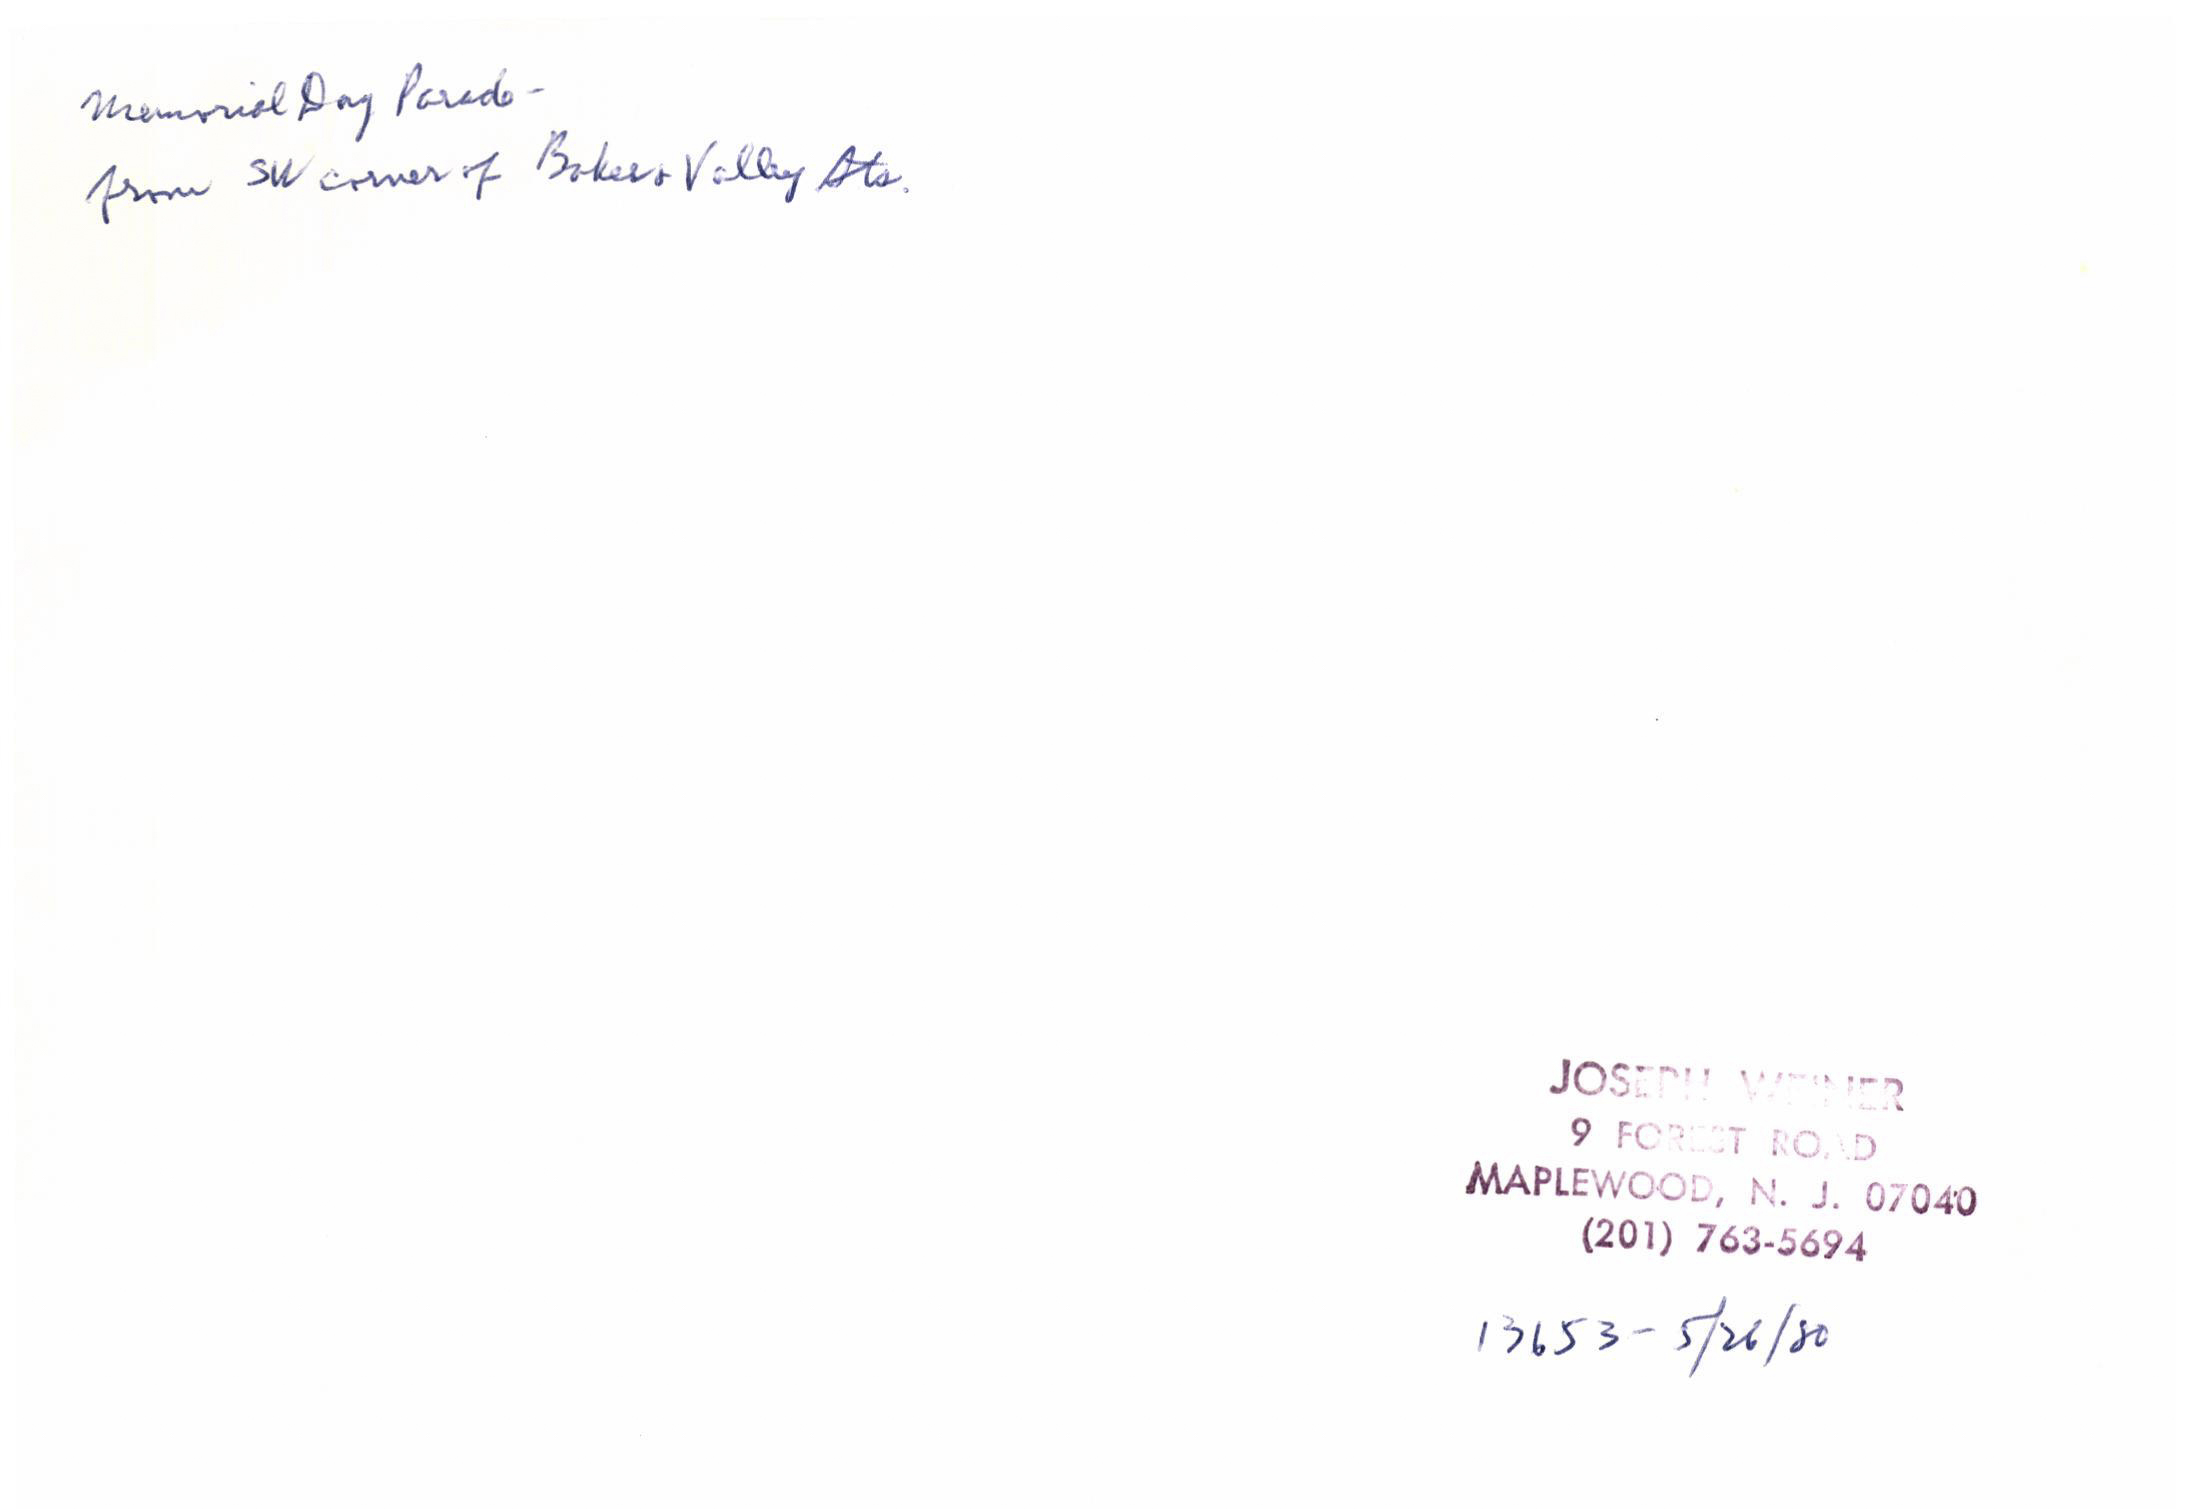 Memorial Day Parade -
from SW corner of Baker & Valley Sts.
JOSEPH WEINER
9 FOREST ROAD
MAPLEWOOD, N. J. 07040
(201) 763-5694
13653 - 5/26/80